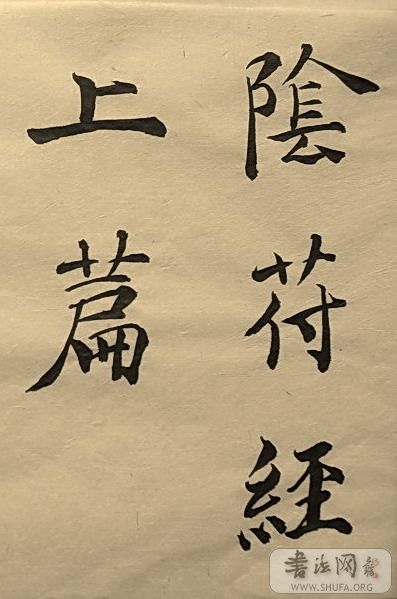 陰苻經
上萹
書法网
WWW.SHUFA.ORG